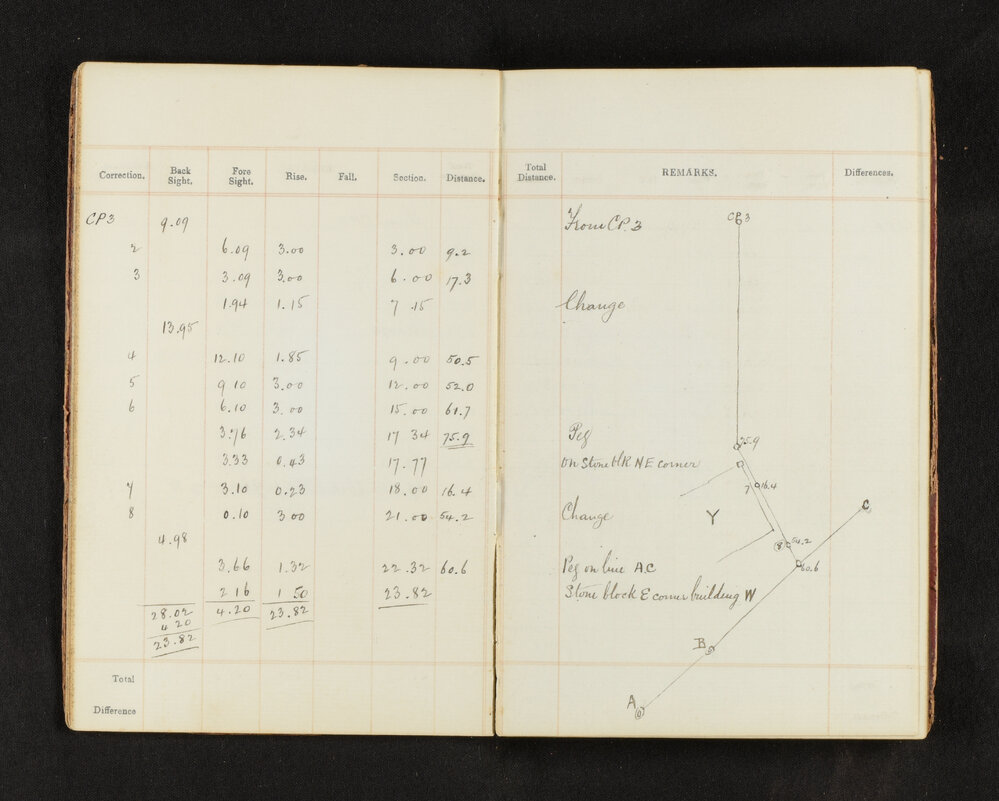 Correction. Back Sight. Fore Sight. Rise. Fall. Section. Distance.
CP3 9.09
2 6.09 3.00 3.00 9.2
3 3.09 3.00 6.00 17.3
1.94 1.15 7.15
13.95
4 12.10 1.85 9.00 50.5
5 9 10 3.00 12.00 52.0
6 6.10 3.00 15.00 61.7
3.76 2.34 17 34 75.9
3.33 0.43 17.77
7 3.10 0.23 18.00 16.4
8 0.10 3 00 21.00 54.2
4.98
3.66 1.32 22.32 60.6
2 16 1 50 23.82
28.02 4.20 23.82
4 20
23.82
Total
Difference
Total Distance. REMARKS. Differences.
From CP. 3 CP 3
Change
Peg 75.9
on Stone blk NE corner
7 16.4
Change Y C
8 54.2
Peg on line A.C 60.6
Stone block E corner building W
B
A